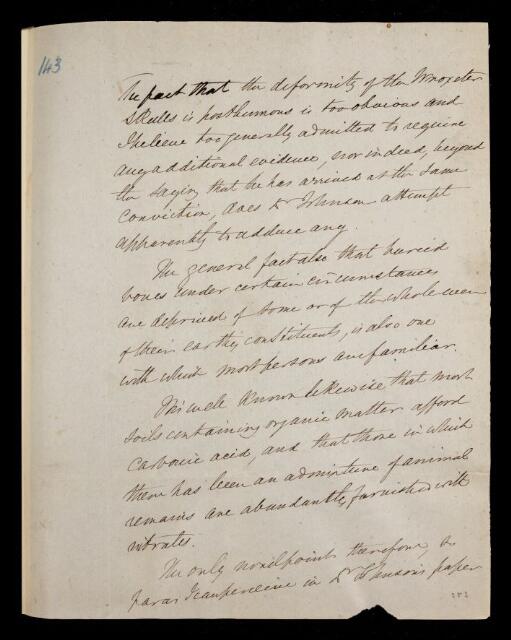 143
The fact that the deformity of the Wroxeter
Skulls is posthumous is too obvious and
I believe too generally admitted to require
any additional evidence, nor indeed, beyond
the saying that he has arrived at the same
conviction, does Dr Johnson attempt
apparently to adduce any.
The general fact also that buried
bones under certain circumstances
are deprived of some or of the whole even
of their earthy constituents, is also one
with which most persons are familiar.
'Tis well known likewise that most
soils containing organic matter afford
carbonic acid, and that those in which
there has been an admixture of animal
remains are abundantly furnished with
nitrates.
The only novel points therefore, so
far as I can perceive in Dr Johnson's paper